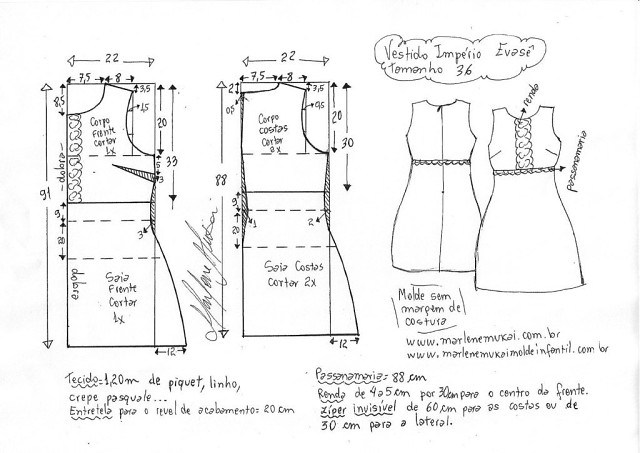 Vestido Império Evasê
Tamanho 36
22
7,5
8
3,5
8,5
1,5
20
Corpo
Frente
cortar
1x
dobra
5
3
33
91
9
20
3
dobra
Saia
Frente
Cortar
1x
12
22
7,5
8
3,5
2
0,5
0,5
20
Corpo
costas
Cortar
2x
30
88
9
1
2
20
Saia Costas
Cortar 2x
12
renda
Passanamaria
Molde sem
margem de
costura
www.marlenemukai.com.br
www.marlenemukaimoldeinfantil.com.br
Tecido=1,20m de piquet, linho,
crepe pasquale...
Entretela para o revel de acabamento= 20 cm
Passanamaria= 88 cm
Renda de 4a5 cm por 30cm para o centro da frente.
zíper invisível de 60 cm para as costas ou de
30 cm para a lateral.